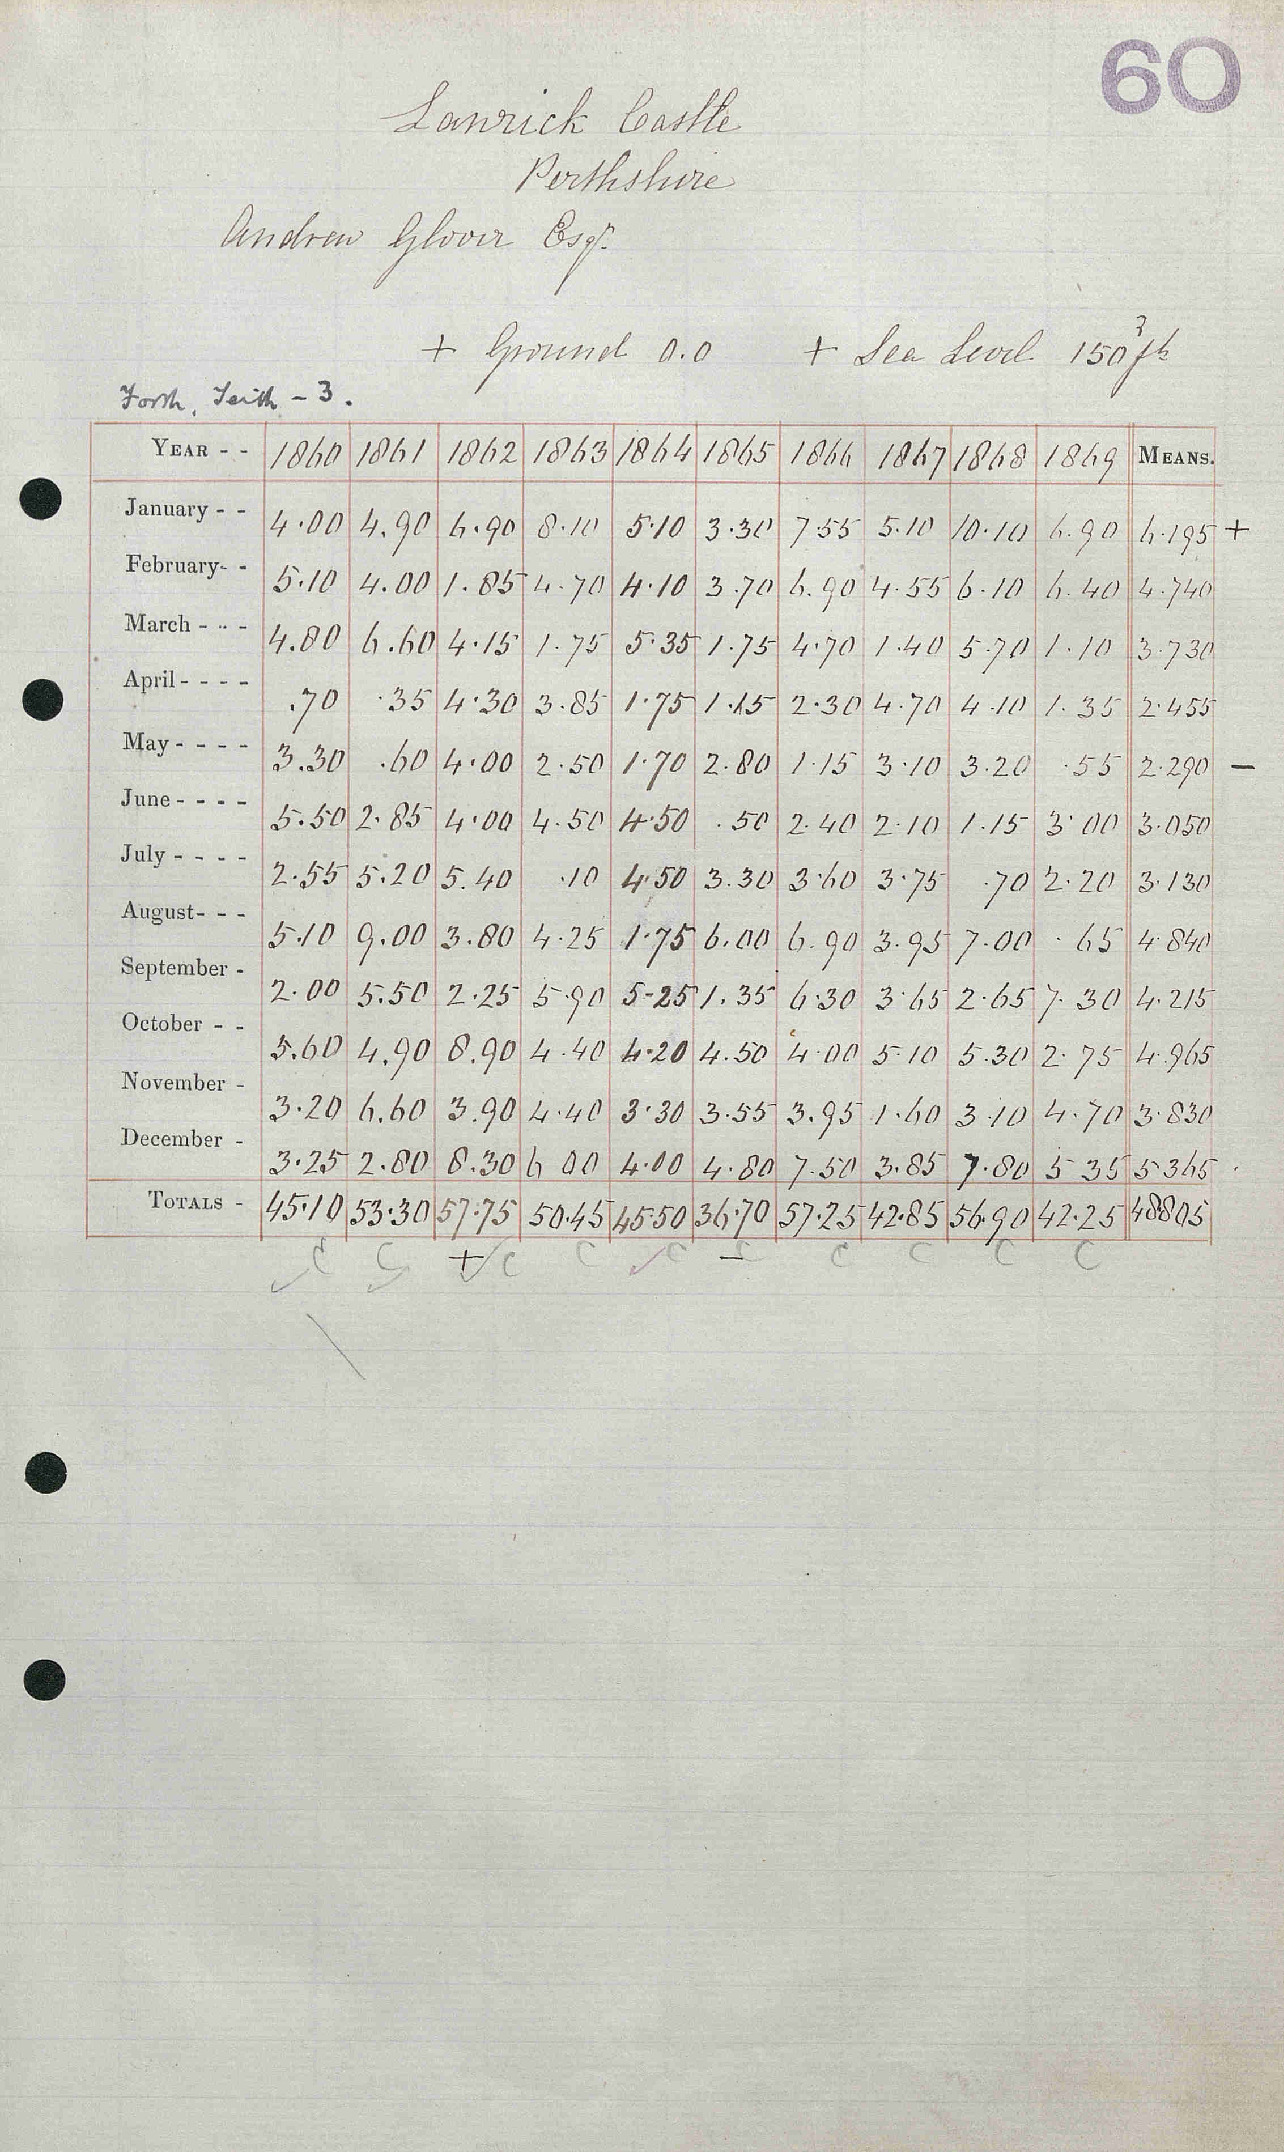 60
Lanrick Castle
Perthshire
Andrew Glover Esqr.
+ Ground 0.0 + Sea Level 150 ? ft
Forth, Teith - 3.
YEAR - - 1860 1861 1862 1863 1864 1865 1866 1867 1868 1869 MEANS.
January - - 4.00 4.90 6.90 8.10 5.10 3.30 7.55 5.10 10.10 6.90 6.195 +
February- - 5.10 4.00 1.85 4.70 4.10 3.70 6.90 4.55 6.10 6.40 4.740
March - - - 4.80 6.60 4.15 1.75 5.35 1.75 4.70 1.40 5.70 1.10 3.730
April - - - - .70 .35 4.30 3.85 1.75 1.15 2.30 4.70 4.10 1.35 2.455
May - - - - 3.30 .60 4.00 2.50 1.70 2.80 1.15 3.10 3.20 .55 2.290 -
June - - - - 5.50 2.85 4.00 4.50 4.50 .50 2.40 2.10 1.15 3.00 3.050
July - - - - 2.55 5.20 5.40 .10 4.50 3.30 3.60 3.75 .70 2.20 3.130
August- - - 5.10 9.00 3.80 4.25 1.75 6.00 6.90 3.95 7.00 .65 4.840
September - 2.00 5.50 2.25 5.90 5.25 1.35 6.30 3.65 2.65 7.30 4.215
October - - 5.60 4.90 8.90 4.40 4.20 4.50 4.00 5.10 5.30 2.75 4.965
November - 3.20 6.60 3.90 4.40 3.30 3.55 3.95 1.60 3.10 4.70 3.830
December - 3.25 2.80 8.30 6 00 4.00 4.80 7.50 3.85 7.80 5 35 5 365
TOTALS - 45.10 53.30 57.75 50.45 45.50 36.70 57.25 42.85 56.90 42.25 48805
C C + C C C - C C C C C